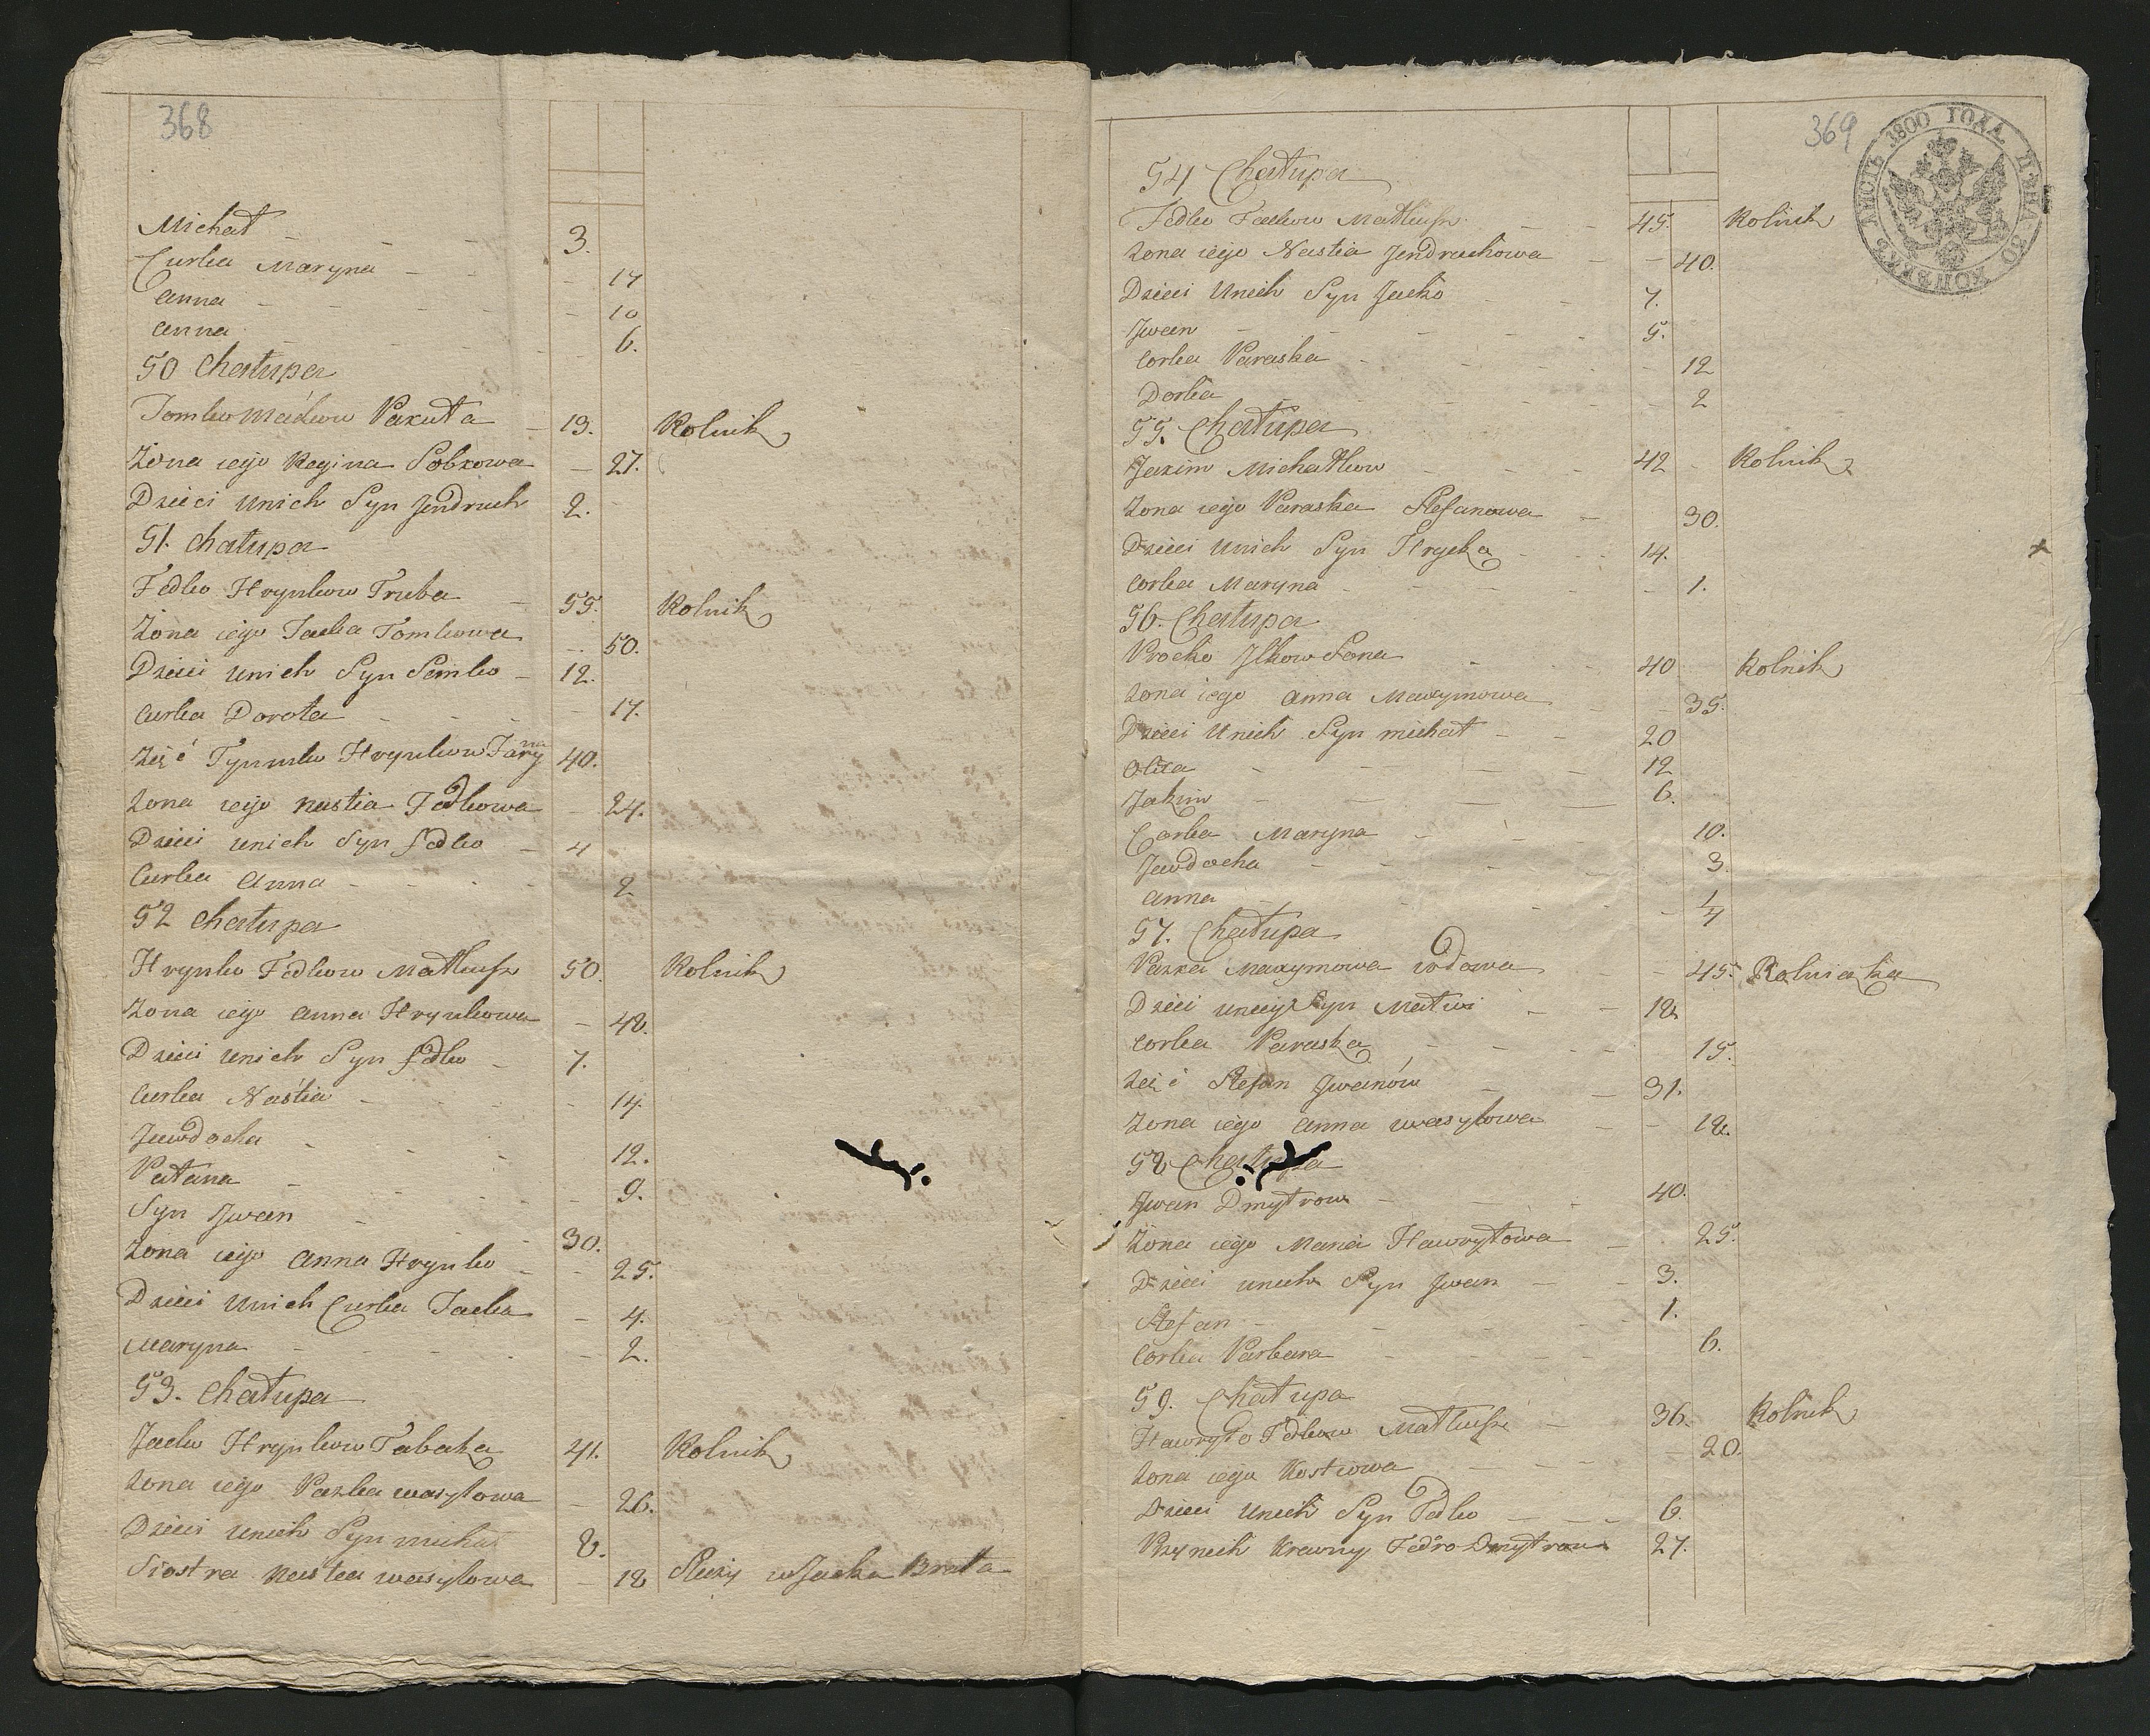 368
Michał - - - 3.
Curka Maryna - - - 17
Anna - - - 10
Anna - - - 6.
50 Chałupa
Tomko Maćkow Pakuta - 19. Rolnik
Żona iego Regina Sobkowa - 27.
Dzieci Unich Syn Jendruch 2.
51. Chałupa
Fedko Hrynkow Truba - 55. Rolnik
Żona iego Jacka Tomkowa - 50.
Dzieci Unich Syn Semko - 12.
Curka Dorota - - - 17.
Zięć Tymko Hrynkow 40.
Żona iego Nastia Fedkowa - 24.
Dzieci Unich Syn Fedko - 4
Curka Anna - - - 2
52 Chałupa
Hrynko Fedkow Matkusz 50. Rolnik
Żona iego Anna Hrynkowa - 48.
Dzieci Unich Syn Fedko - 7.
Curka Nastia - - - 14.
Jawdocha - - - 12.
Patana - - - 9.
Syn Jwan - - - 30.
Żona iego Anna Hrynko - - 25.
Dzieci Unich Curka Jacka - 4.
Maryna - - - 2.
53. Chałupa
Jacko Hrynkow Tabaka 41. Rolnik
Żona iego Pazka Wasylowa - 26.
Dzieci Unich Syn Michał 8.
Siostra Nastea Wasylowa - 18 Służy u Jacka Brata
369
ЛИСТЪ 1800 ГОДА ЦѢНА 30 КОПѢЕКЪ
54 Chałupa
Fedko Jackow Matkusz - - 45. Rolnik
Żona iego Nastia Jendruchowa - - 40.
Dzieci Unich Syn Jacko - - 7.
Jwan - - - 5.
Corka Paraska - - - 12
Dorka - - - 2
55. Chałupa
Jakim Michałkow - - - 42 - Rolnik
Żona iego Paraska Stefanowa - 30.
Dzieci Unich Syn Hrycka - - 14.
Corka Maryna - - - 1.
56. Chałupa
Procko Jlkow - - 40 Rolnik
Żona iego Anna Maxymowa - - 35.
Dzieci Unich Syn Michał - - 20
Olexa - - - 12
Jakim - - - 6.
Corka Maryna - - - 10.
Jawdocha - - - 3.
Anna - - - 1/4
57. Chałupa
Pazka Maxymowa Wdowa - - 45. Rolniczka
Dzieci Uneiy Syn Matwi - - 18
Corka Paraska - - - 15.
Zięć Stefan Jwanów - - 31.
Żona iego Anna Wasylowa - - 18.
58 Chałupa
Jwan Dmytrow - - - 40.
Żona iego Maria Hawryłowa - 25.
Dzieci Unich Syn Jwan - - 3.
Stefan - - - 1.
Corka Barbara - - - 6.
59. Chałupa
Hawryło Fedkow Matkusz - 36. Rolnik
Żona iego Kostiowa - - - 20.
Dzieci Unich Syn Fedko - - - 6.
Przynich Krewny Fedro Dmytrow 27.